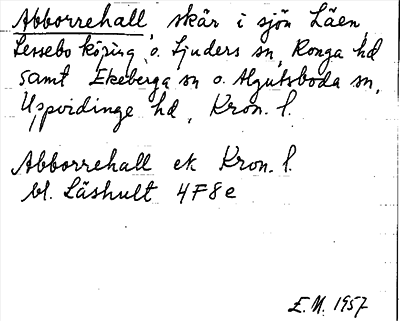 Abborrehall, skär i sjön Läen,
Lessebo köping, o. Ljuders sn, Konga hd
samt Ekeberga sn o. Algutsboda sn,
Uppvidinge hd, Kron. l.
Abborrehall ek Kron. l.
bl. Läshult 4F8e
E.M. 1957